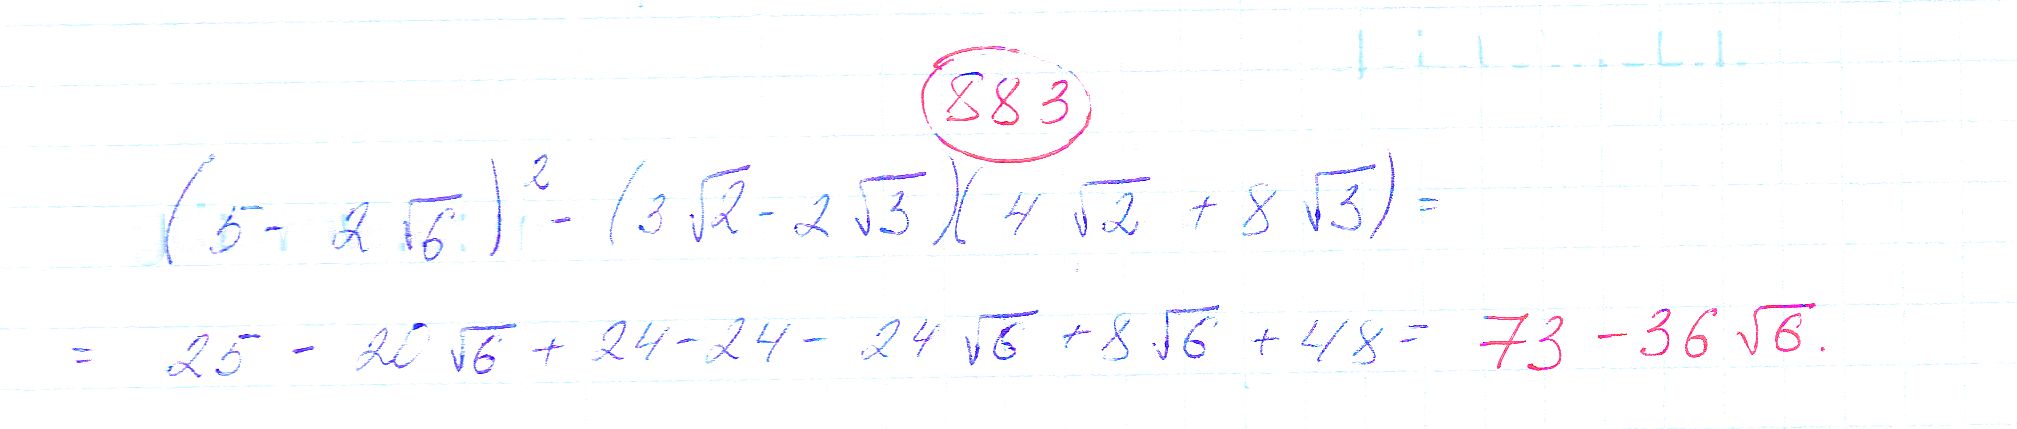 883
(5 - 2√6)² - (3√2 - 2√3)(4√2 + 8√3) =
= 25 - 20√6 + 24 - 24 - 24√6 + 8√6 + 48 = 73 - 36√6.